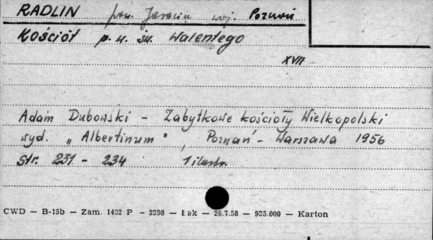 RADLIN pow. Jarocin woj. Poznań
Kościół p. w. św. Walentego
XVII
Adam Dubowski - Zabytkowe kościoły Wielkopolski
wyd. „Albertinum", Poznań - Warszawa 1956
str. 231 - 234 1 ilustr.
CWD — B-15b — Zam. 1432 P — 2398 — Łak — 26.7.58 — 935.000 — Karton